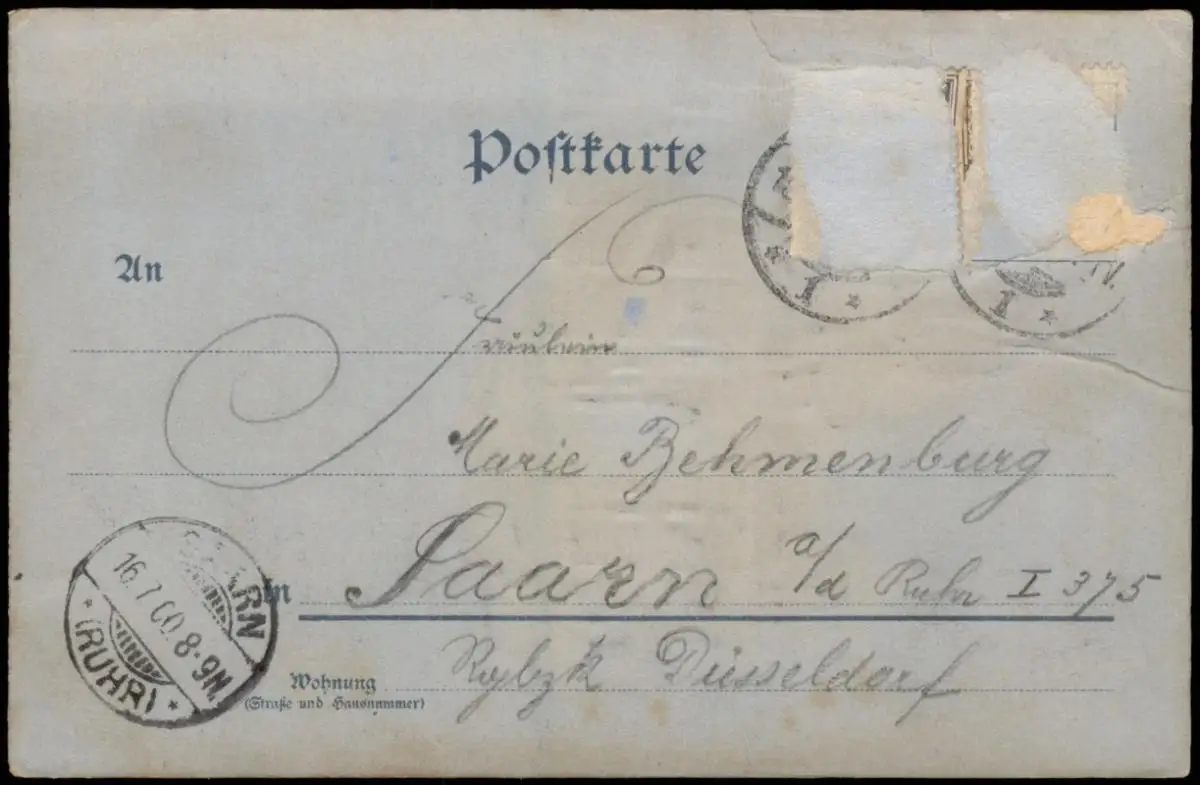 Postkarte
An
Fräulein
Marie Behmenburg
in Saarn a/d Ruhr I 375
Wohnung
(Straße und Hausnummer)
Rgbzk Düsseldorf
SAARN
16.7.00.8-9N.
* (RUHR) *
* 1 *
1 *
IV.